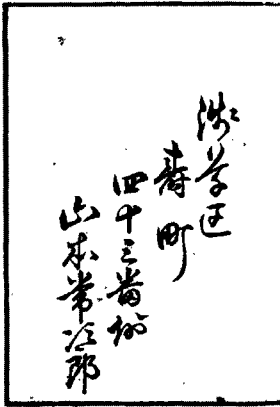 浅草区
寿町
四十三番地
山本常次郎